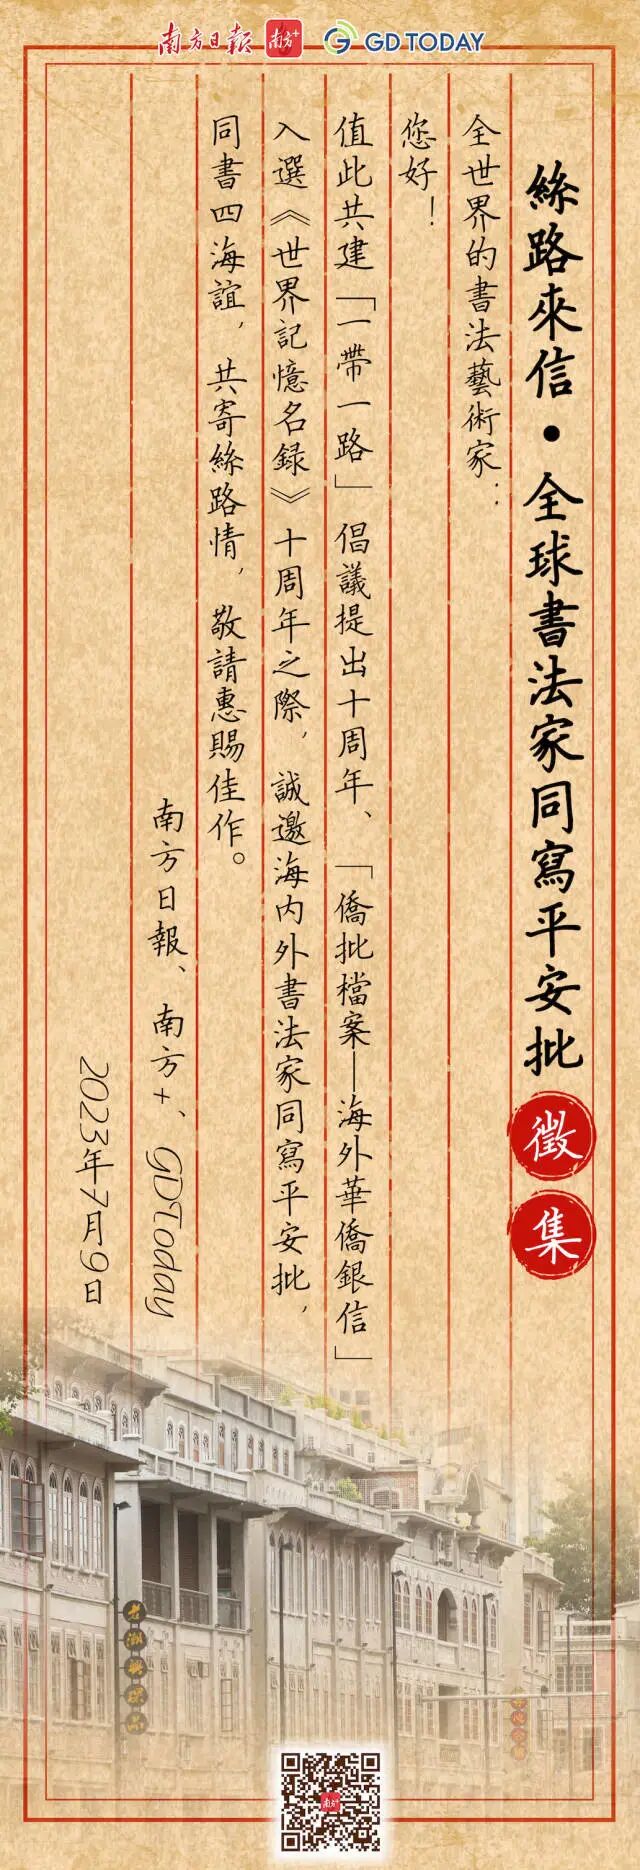 南方日報
南方+
GDTODAY
絲路來信·全球書法家同寫平安批
徵集
全世界的書法藝術家：
您好！
值此共建「一帶一路」倡議提出十周年、「僑批檔案—海外華僑銀信」
入選《世界記憶名録》十周年之際，誠邀海内外書法家同寫平安批，
同書四海誼，共寄絲路情，敬請惠賜佳作。
南方日報、南方+、GDToday
2023年7月9日
南方+